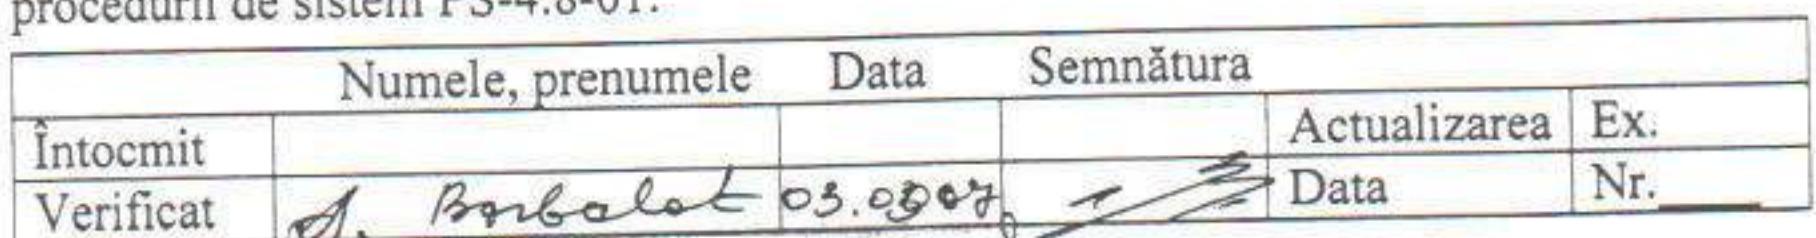 procedurii de sistem PS-4.8-01.
Numele, prenumele Data Semnătura
Întocmit Actualizarea Ex.
Verificat A. Barbalat 03.0307 Data Nr.____